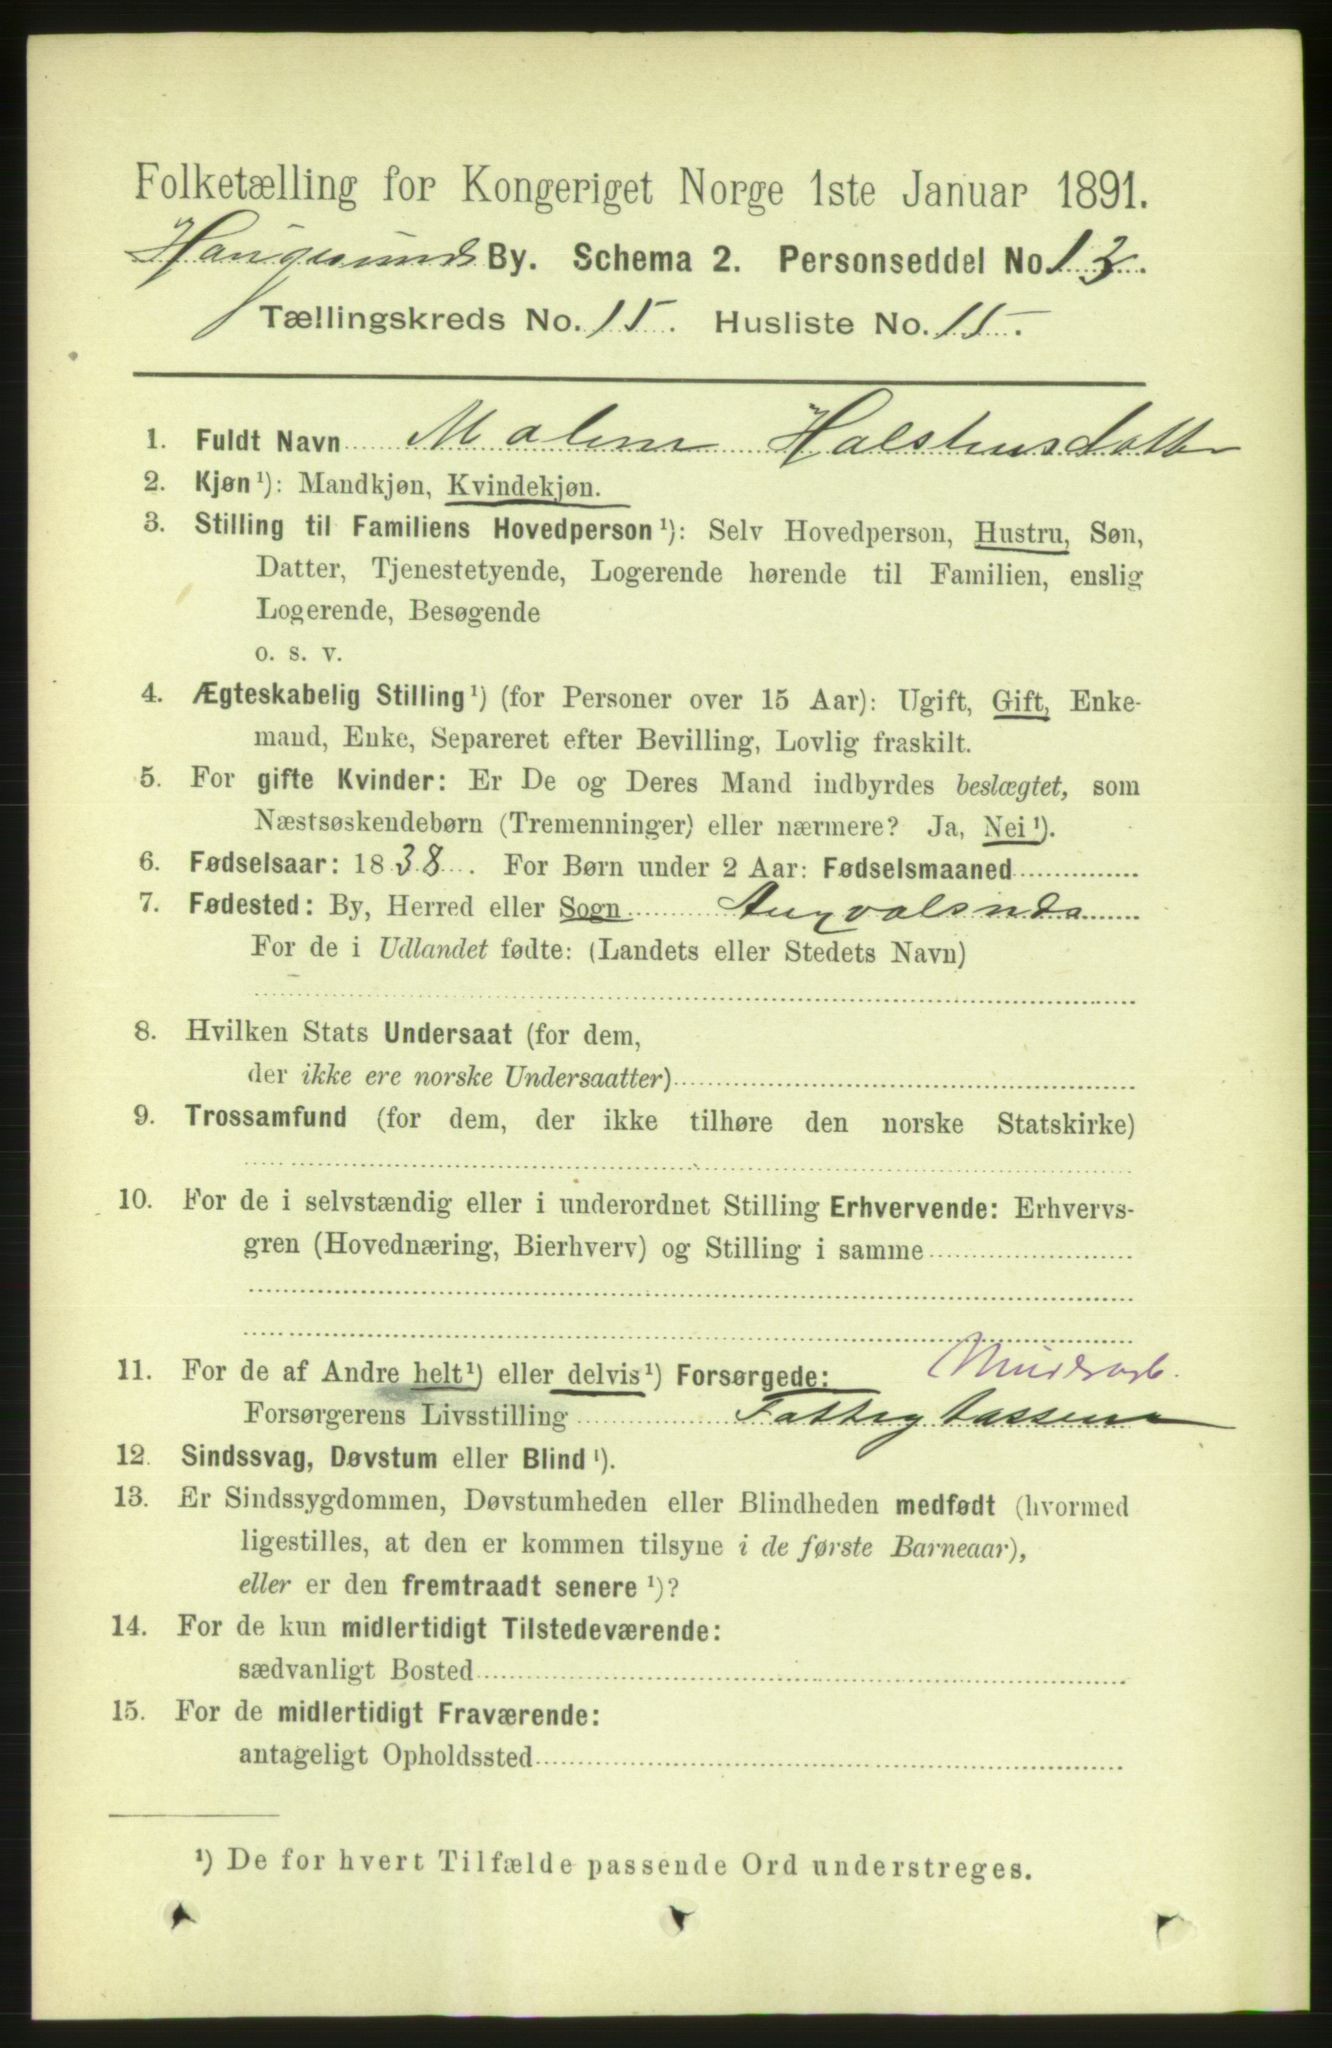 Folketælling for Kongeriget Norge 1ste Januar 1891.
Haugesunds By. Schema 2. Personseddel No 13.
Tællingskreds No. 15. Husliste No. 15.
1. Fuldt Navn Malene Halstensdatter
2. Kjøn¹): Mandkjøn, Kvindekjøn.
3. Stilling til Familiens Hovedperson¹): Selv Hovedperson, Hustru, Søn,
Datter, Tjenestetyende, Logerende hørende til Familien, enslig
Logerende, Besøgende
o. s. v.
4. Ægteskabelig Stilling¹) (for Personer over 15 Aar): Ugift, Gift, Enke-
mand, Enke, Separeret efter Bevilling, Lovlig fraskilt.
5. For gifte Kvinder: Er De og Deres Mand indbyrdes beslægtet, som
Næstsøskendebørn (Tremenninger) eller nærmere? Ja, Nei¹).
6. Fødselsaar: 1838. For Børn under 2 Aar: Fødselsmaaned
7. Fødested: By, Herred eller Sogn
For de i Udlandet fødte: (Landets eller Stedets Navn)
8. Hvilken Stats Undersaat (for dem,
der ikke ere norske Undersaatter)
9. Trossamfund (for dem, der ikke tilhøre den norske Statskirke)
10. For de i selvstændig eller i underordnet Stilling Erhvervende: Erhvervs-
gren (Hovednæring, Bierhverv) og Stilling i samme
11. For de af Andre helt¹) eller delvis¹) Forsørgede:
Forsørgerens Livsstilling Fattigkassen
12. Sindssvag, Døvstum eller Blind¹).
13. Er Sindssygdommen, Døvstumheden eller Blindheden medfødt (hvormed
ligestilles, at den er kommen tilsyne i de første Barneaar),
eller er den fremtraadt senere¹)?
14. For de kun midlertidigt Tilstedeværende:
sædvanligt Bosted
15. For de midlertidigt Fraværende:
antageligt Opholdssted
¹) De for hvert Tilfælde passende Ord understreges.